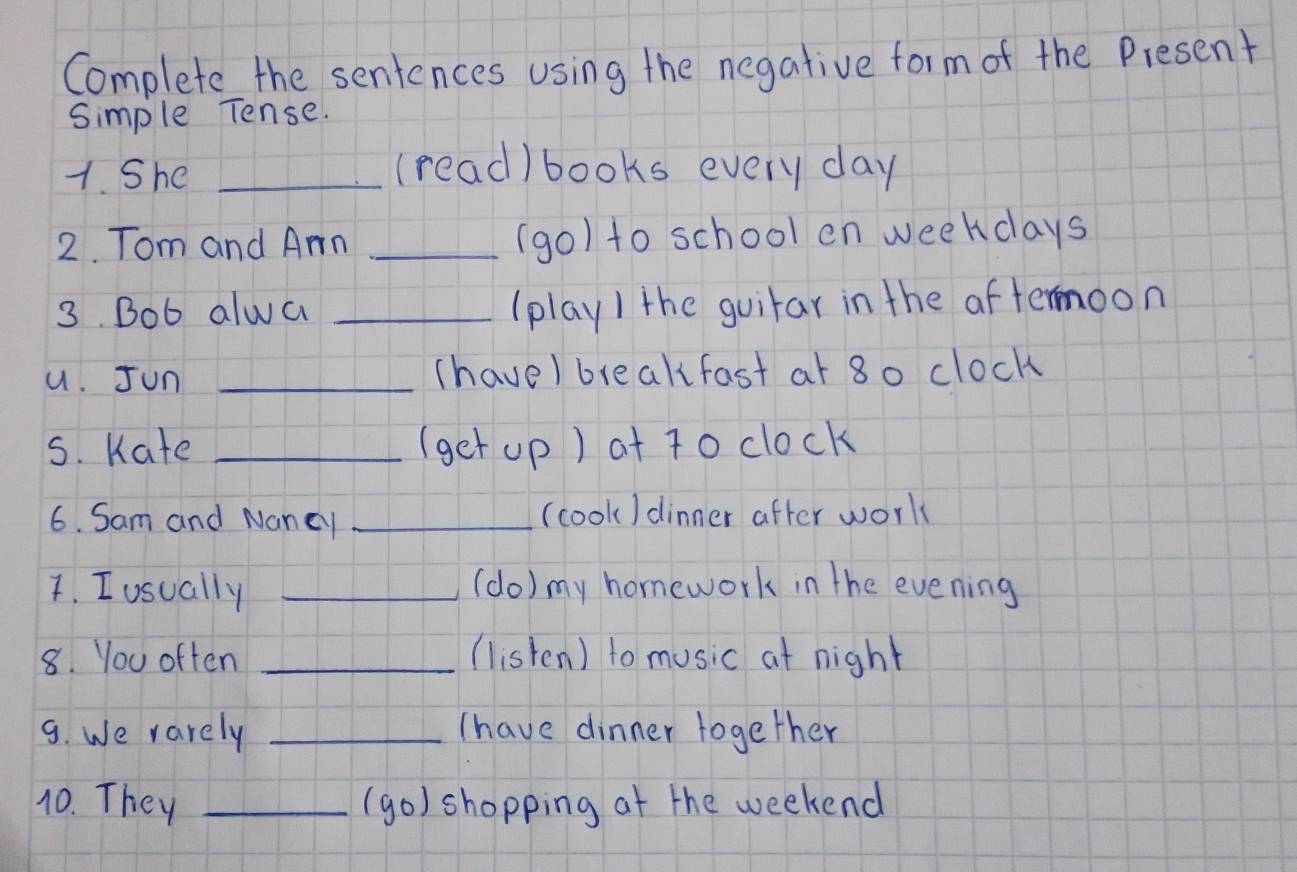 Complete the sentences using the negative form of the Present
Simple Tense.
1. She ______ (read) books every day
2. Tom and Ann ______ (go) to school on weekdays
3. Bob alwa ______ (play) the guitar in the afternoon
4. Jun ______ (have) breakfast at 8 o clock
5. Kate ______ (get up) at 7 o clock
6. Sam and Nancy ______ (cook) dinner after work
7. I usually ______ (do) my homework in the evening
8. You often ______ (listen) to music at night
9. We rarely ______ (have dinner together
10. They ______ (go) shopping at the weekend